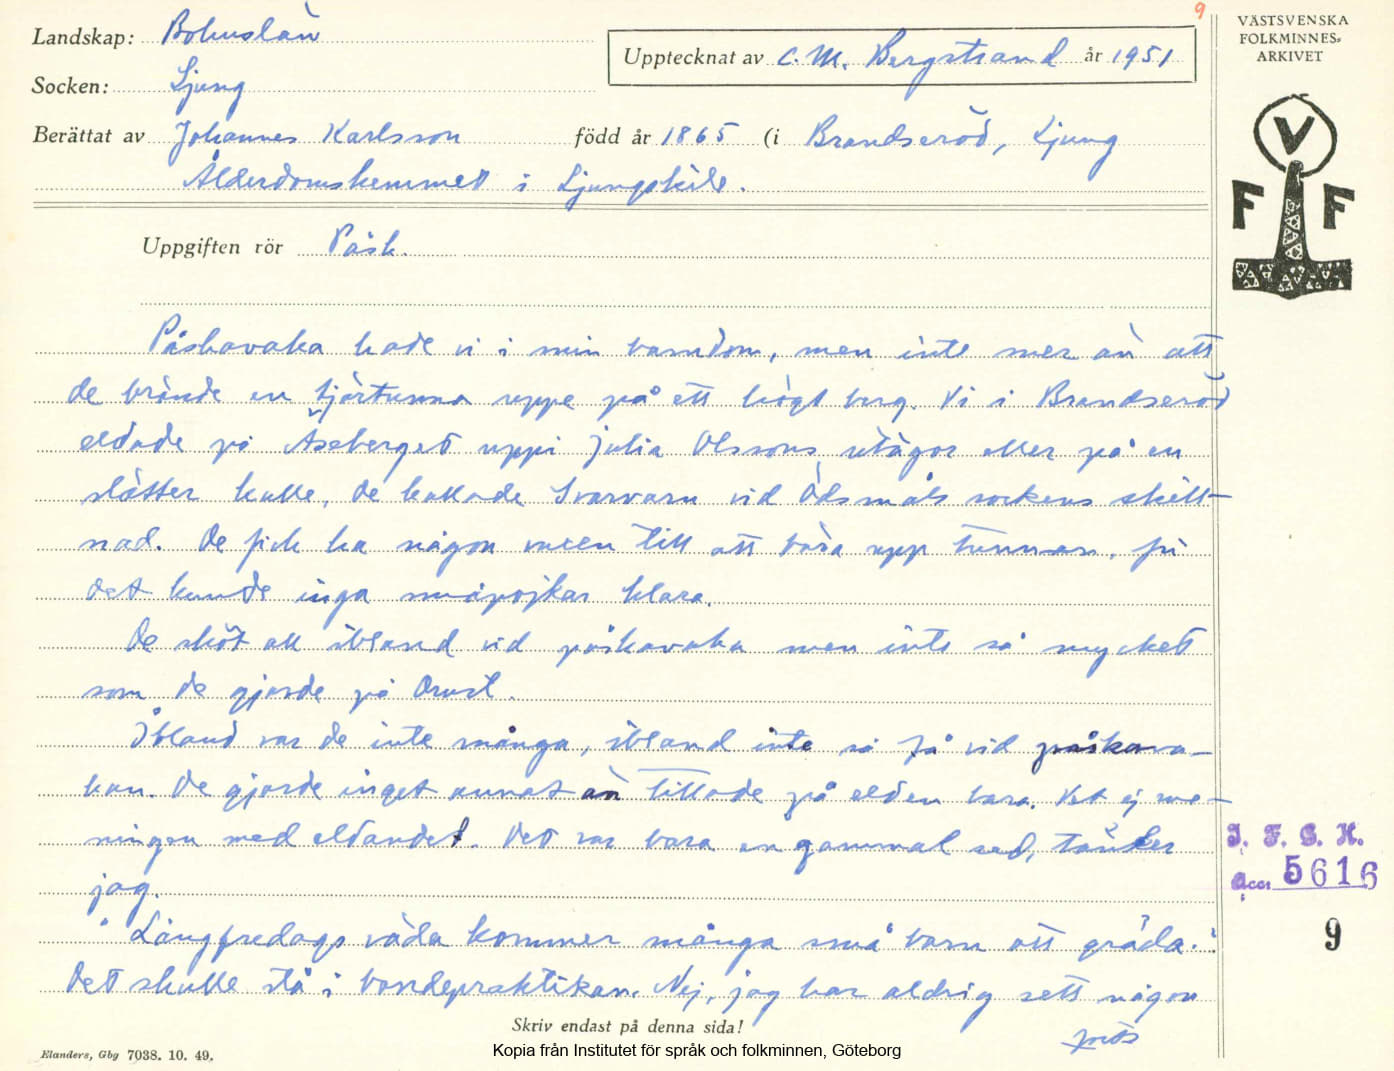 9
Landskap: Bohuslän
Upptecknat av C. M. Bergstrand år 1951
Socken: Ljung
Berättat av Johannes Karlsson född år 1865 (i Brandseröd, Ljung
Ålderdomshemmet i Ljungskile.
Uppgiften rör Påsk.
VÄSTSVENSKA
FOLKMINNES-
ARKIVET
V
F F
Påskavaka hade vi i min barndom, men inte mer än att
de brände en tjärtunna uppe på ett högt berg. Vi i Brandseröd
eldade på Åseberget uppi Julia Olssons utägor eller på en
slätter kulle, de kallade Svarvarn vid Ödsmåls sockens skill-
nad. De fick ha någon vuxen till att bära upp tunnan, för
det kunde inga småpojkar klara.
De sköt ock ibland vid påskavaka men inte så mycket
som de gjorde på Orust.
Ibland var de inte många, ibland inte så få vid påskava-
kan. De gjorde inget annat än tittade på elden bara. Vet ej me-
ningen med eldandet. Det var bara en gammal sed, tänker
jag.
"Långfredags väda kommer många små barn att gräda."
Det skulle stå i bondepraktikan. Nej, jag har aldrig sett någon
Skriv endast på denna sida!
I. F. G. H.
Acc. 5616
9
Elanders, Gbg 7038. 10. 49.
Kopia från Institutet för språk och folkminnen, Göteborg